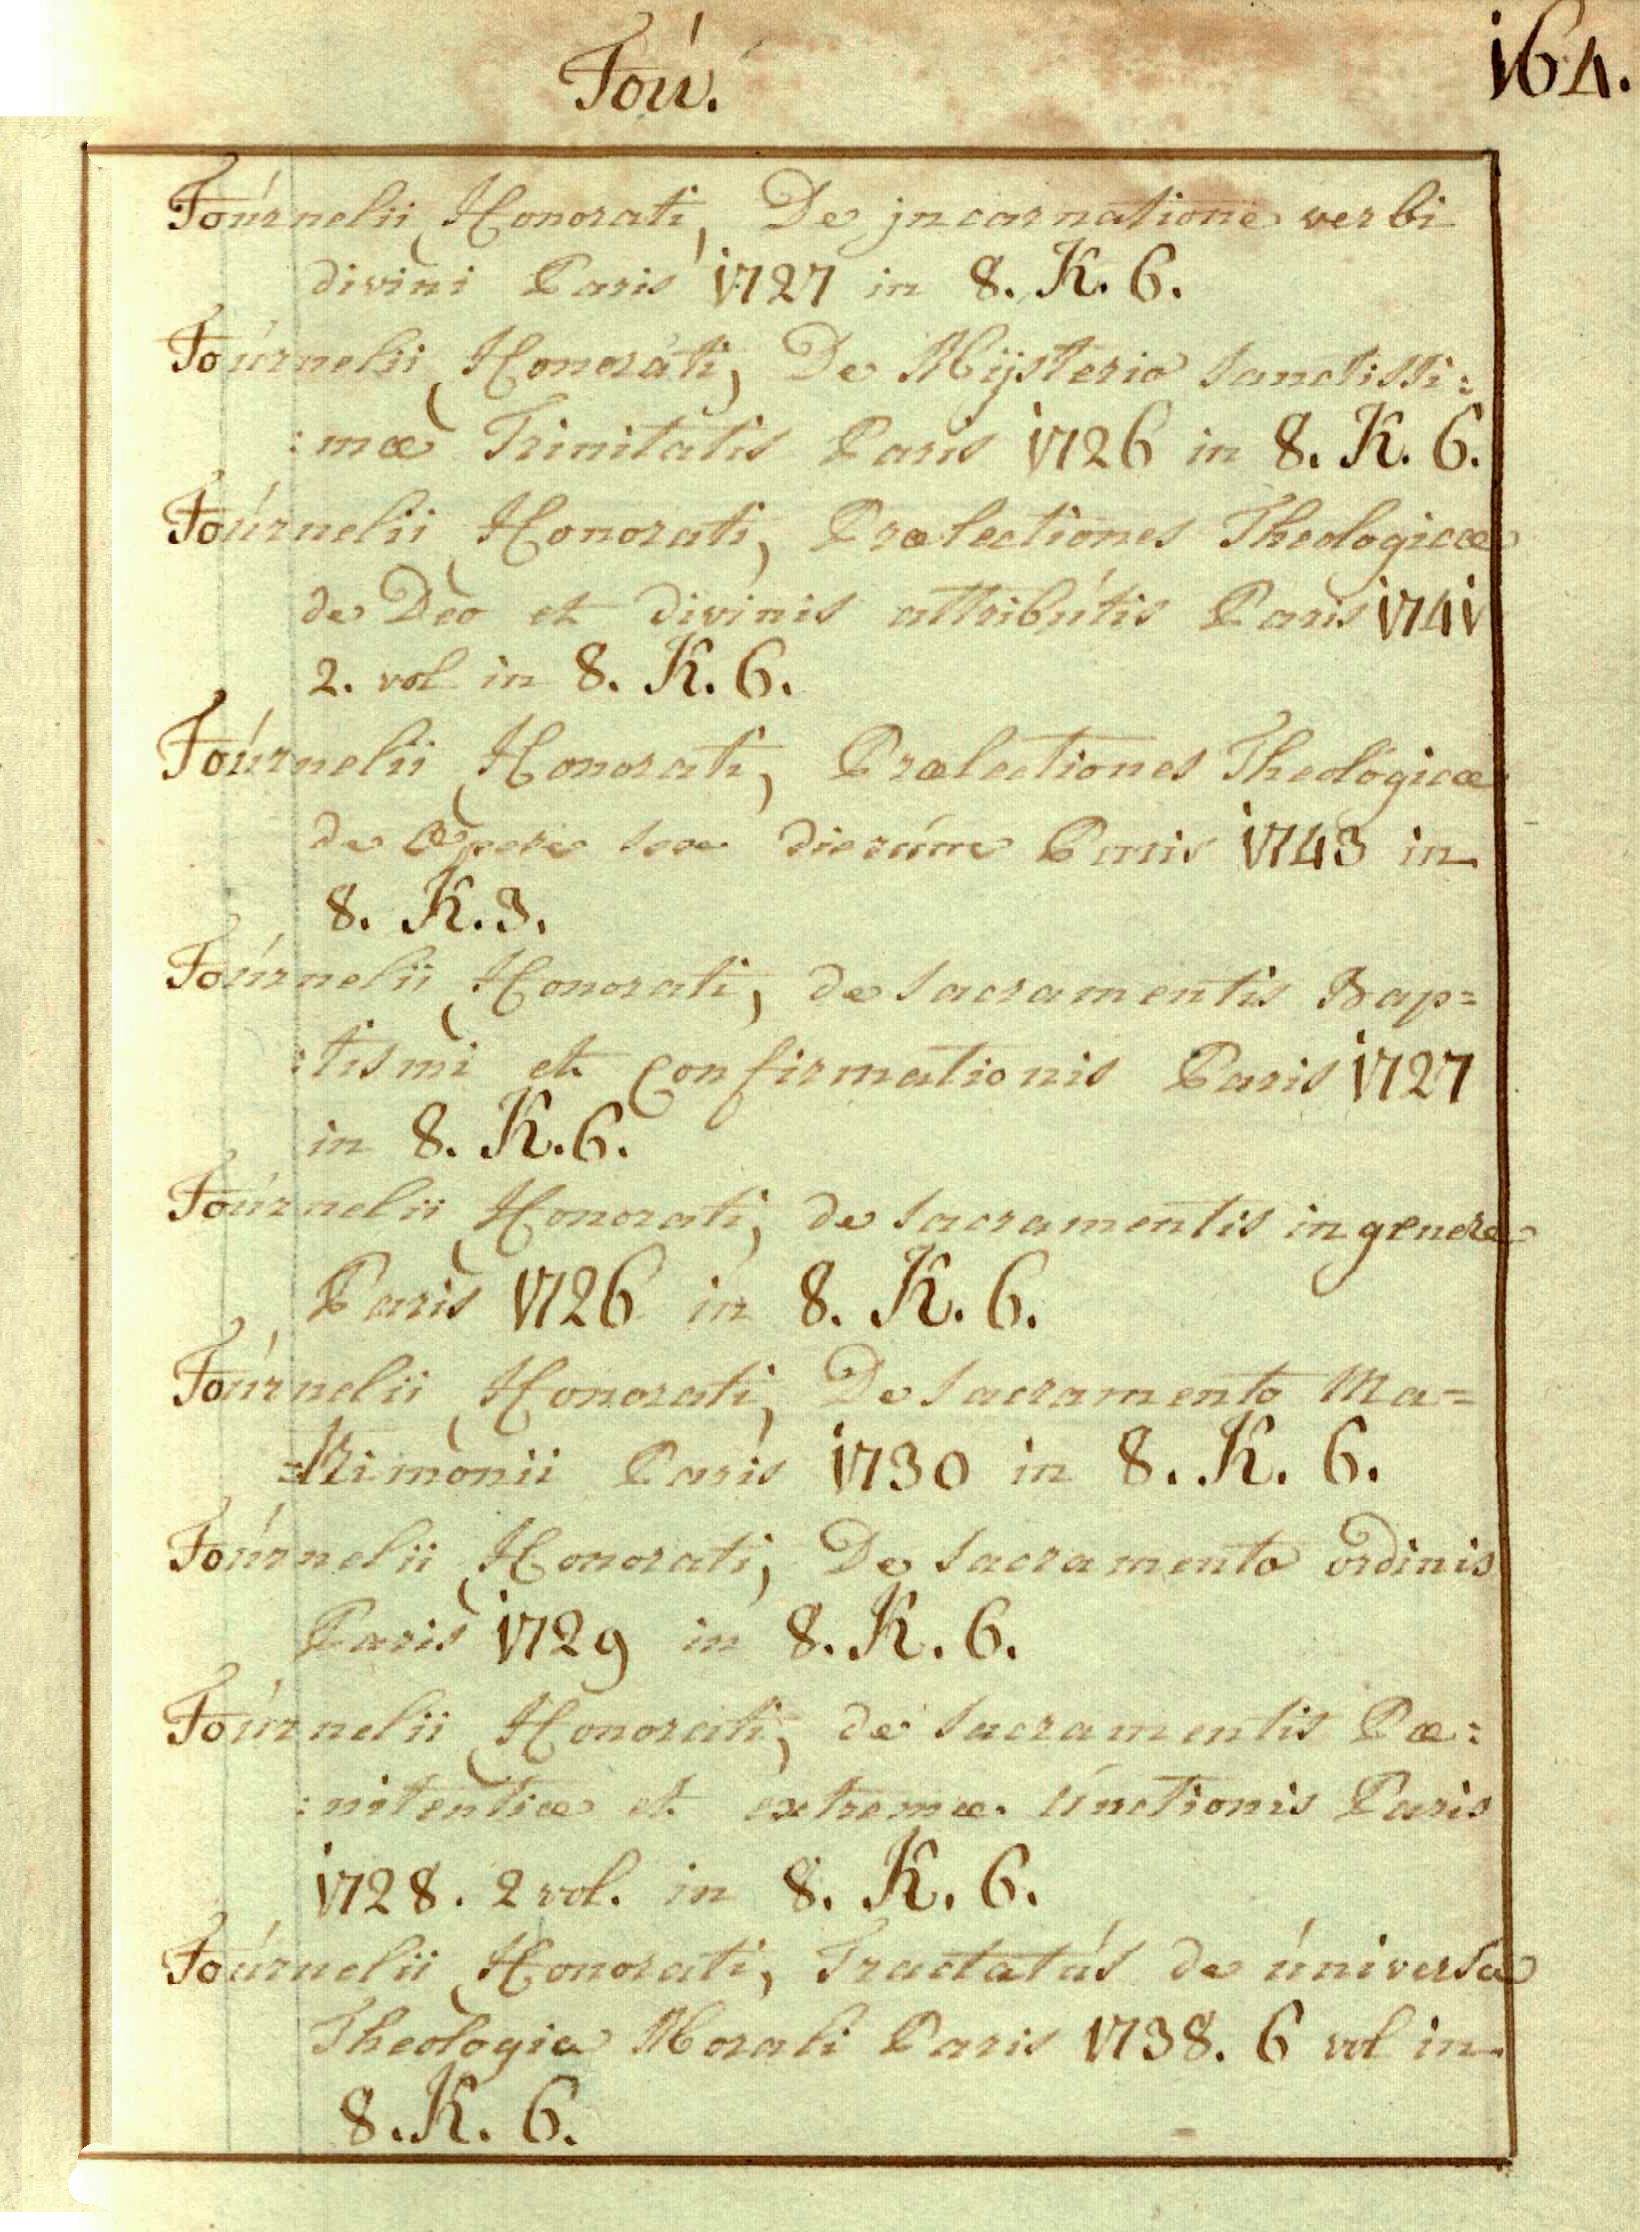 Foú.
164.
Foúrnelii Honorati, De jncarnatione verbi
divini Paris 1727 in 8. K. 6.
Foúrnelii Honorati, De Mÿsterio Sanctissi:
:mæ Trinitatis Paris 1726 in 8. K. 6.
Foúrnelii Honorati, Prælectiones Theologicæ
de Deo et divinis attribútis Paris 1741
2. vol in 8. K. 6.
Foúrnelii Honorati, Prælectiones Theologicæ
de Opere sex dierúm Paris 1743 in
8. K. 3.
Foúrnelii Honorati, de Sacramentis Bap=
:tismi et Confirmationis Paris 1727
in 8. K. 6.
Foúrnelii Honorati, de Sacramentis in genere
Paris 1726 in 8. K. 6.
Foúrnelii Honorati, De Sacramento Ma=
=trimonii Paris 1730 in 8. K. 6.
Foúrnelii Honorati, De Sacramento ordinis
Paris 1729 in 8. K. 6.
Foúrnelii Honorati, de Sacramentis Pæ:
:nitentiæ et extremæ. únctionis Paris
1728. 2 vol. in 8. K. 6.
Foúrnelii Honorati, Tractatús de úniversa
Theologia Morali Paris 1738. 6 vol in
8. K. 6.